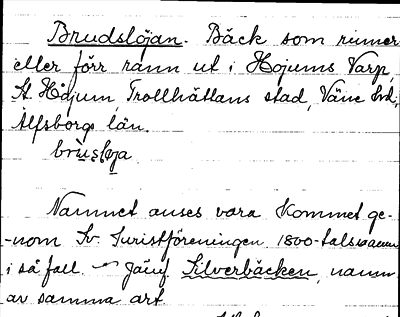 Brudslöjan. Bäck som rinner
eller förr rann ut i Hojums Varp,
St. Hojum, Trollhättans stad, Väne hd,
Älfsborgs län.
brùsløja
Namnet anses vara kommet ge-
-nom Sv. Turistföreningen. 1800-talsnamn
i så fall. — Jämf. Silverbäcken, namn
av samma art.